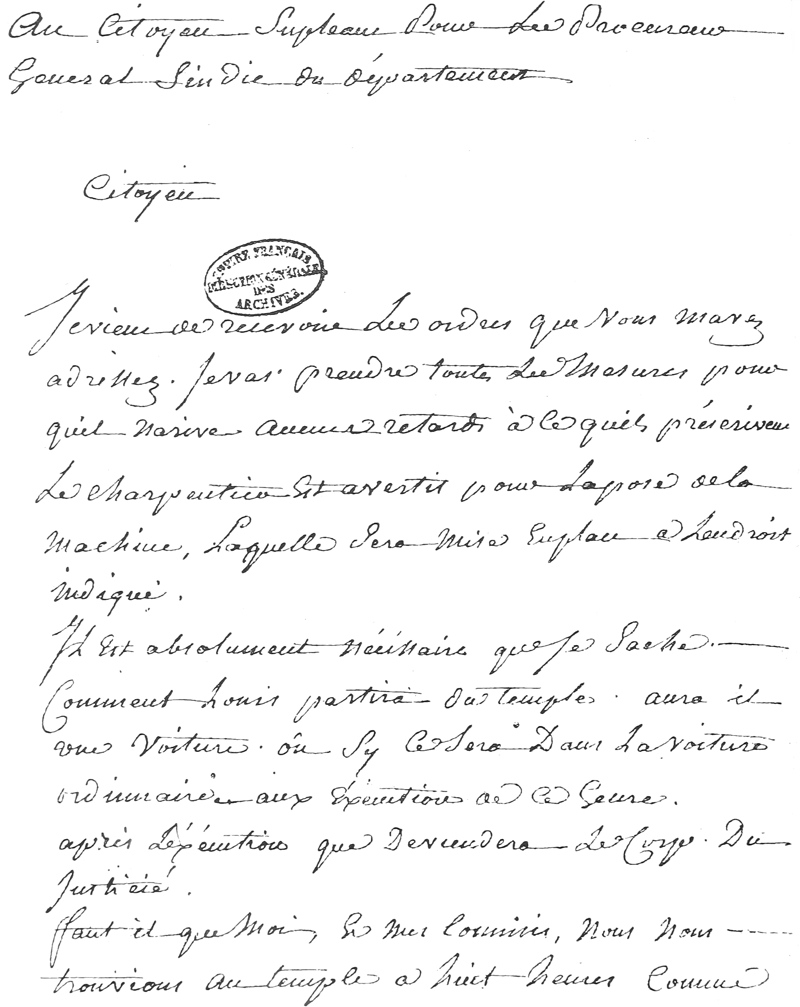 Au Citoyen Supleant Pour Le Procureur
General Sindic du département
Citoyen
FRANÇAIS
DIRECTION GÉNÉRALE
DES
ARCHIVES.
Je vient de recevoire Les ordres que Vous mavez
adressez. Je vas prendre toutes Les Mesures pour
quil narive aucuns retards à ce quils préscrivent
Le charpentier Est avertit pour La pose de la
machine, Laquelle Sera Mise En place a Lendroit
indiqué.
Il Est absolument nécéssaire que Je Sache
Comment Louis partira du temple. aura il
une Voiture. ou Sy Ce Sera Dans La voiture
ordinnaire aux Exécution de ce Genre.
après L'éxécution que Deviendera Le Corp. Du
Justicié.
faut il que Moi, Et Mes Commis, Nous Nous
trouvions au temple a huit heures Comme